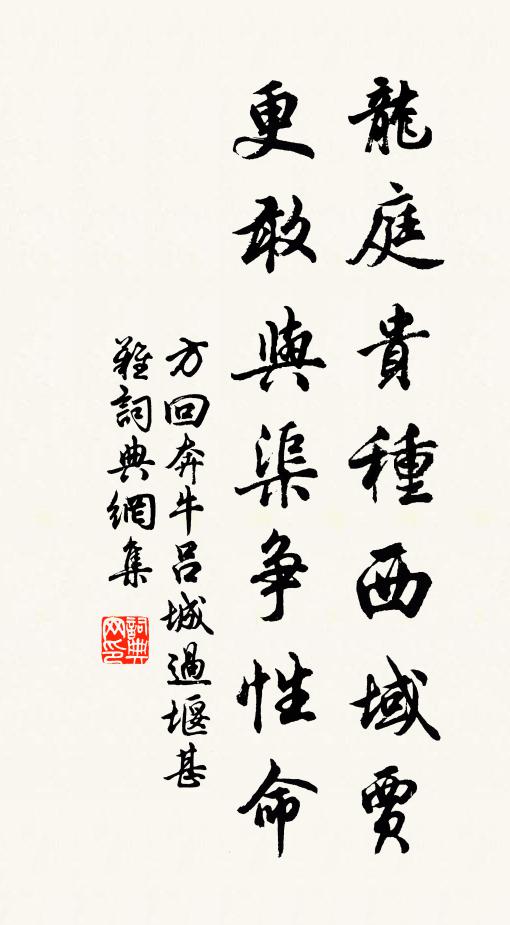 龍庭貴種西域賈
更敢與渠爭性命
方回奔牛呂城過堰甚
難詞典網集
詞典
网印